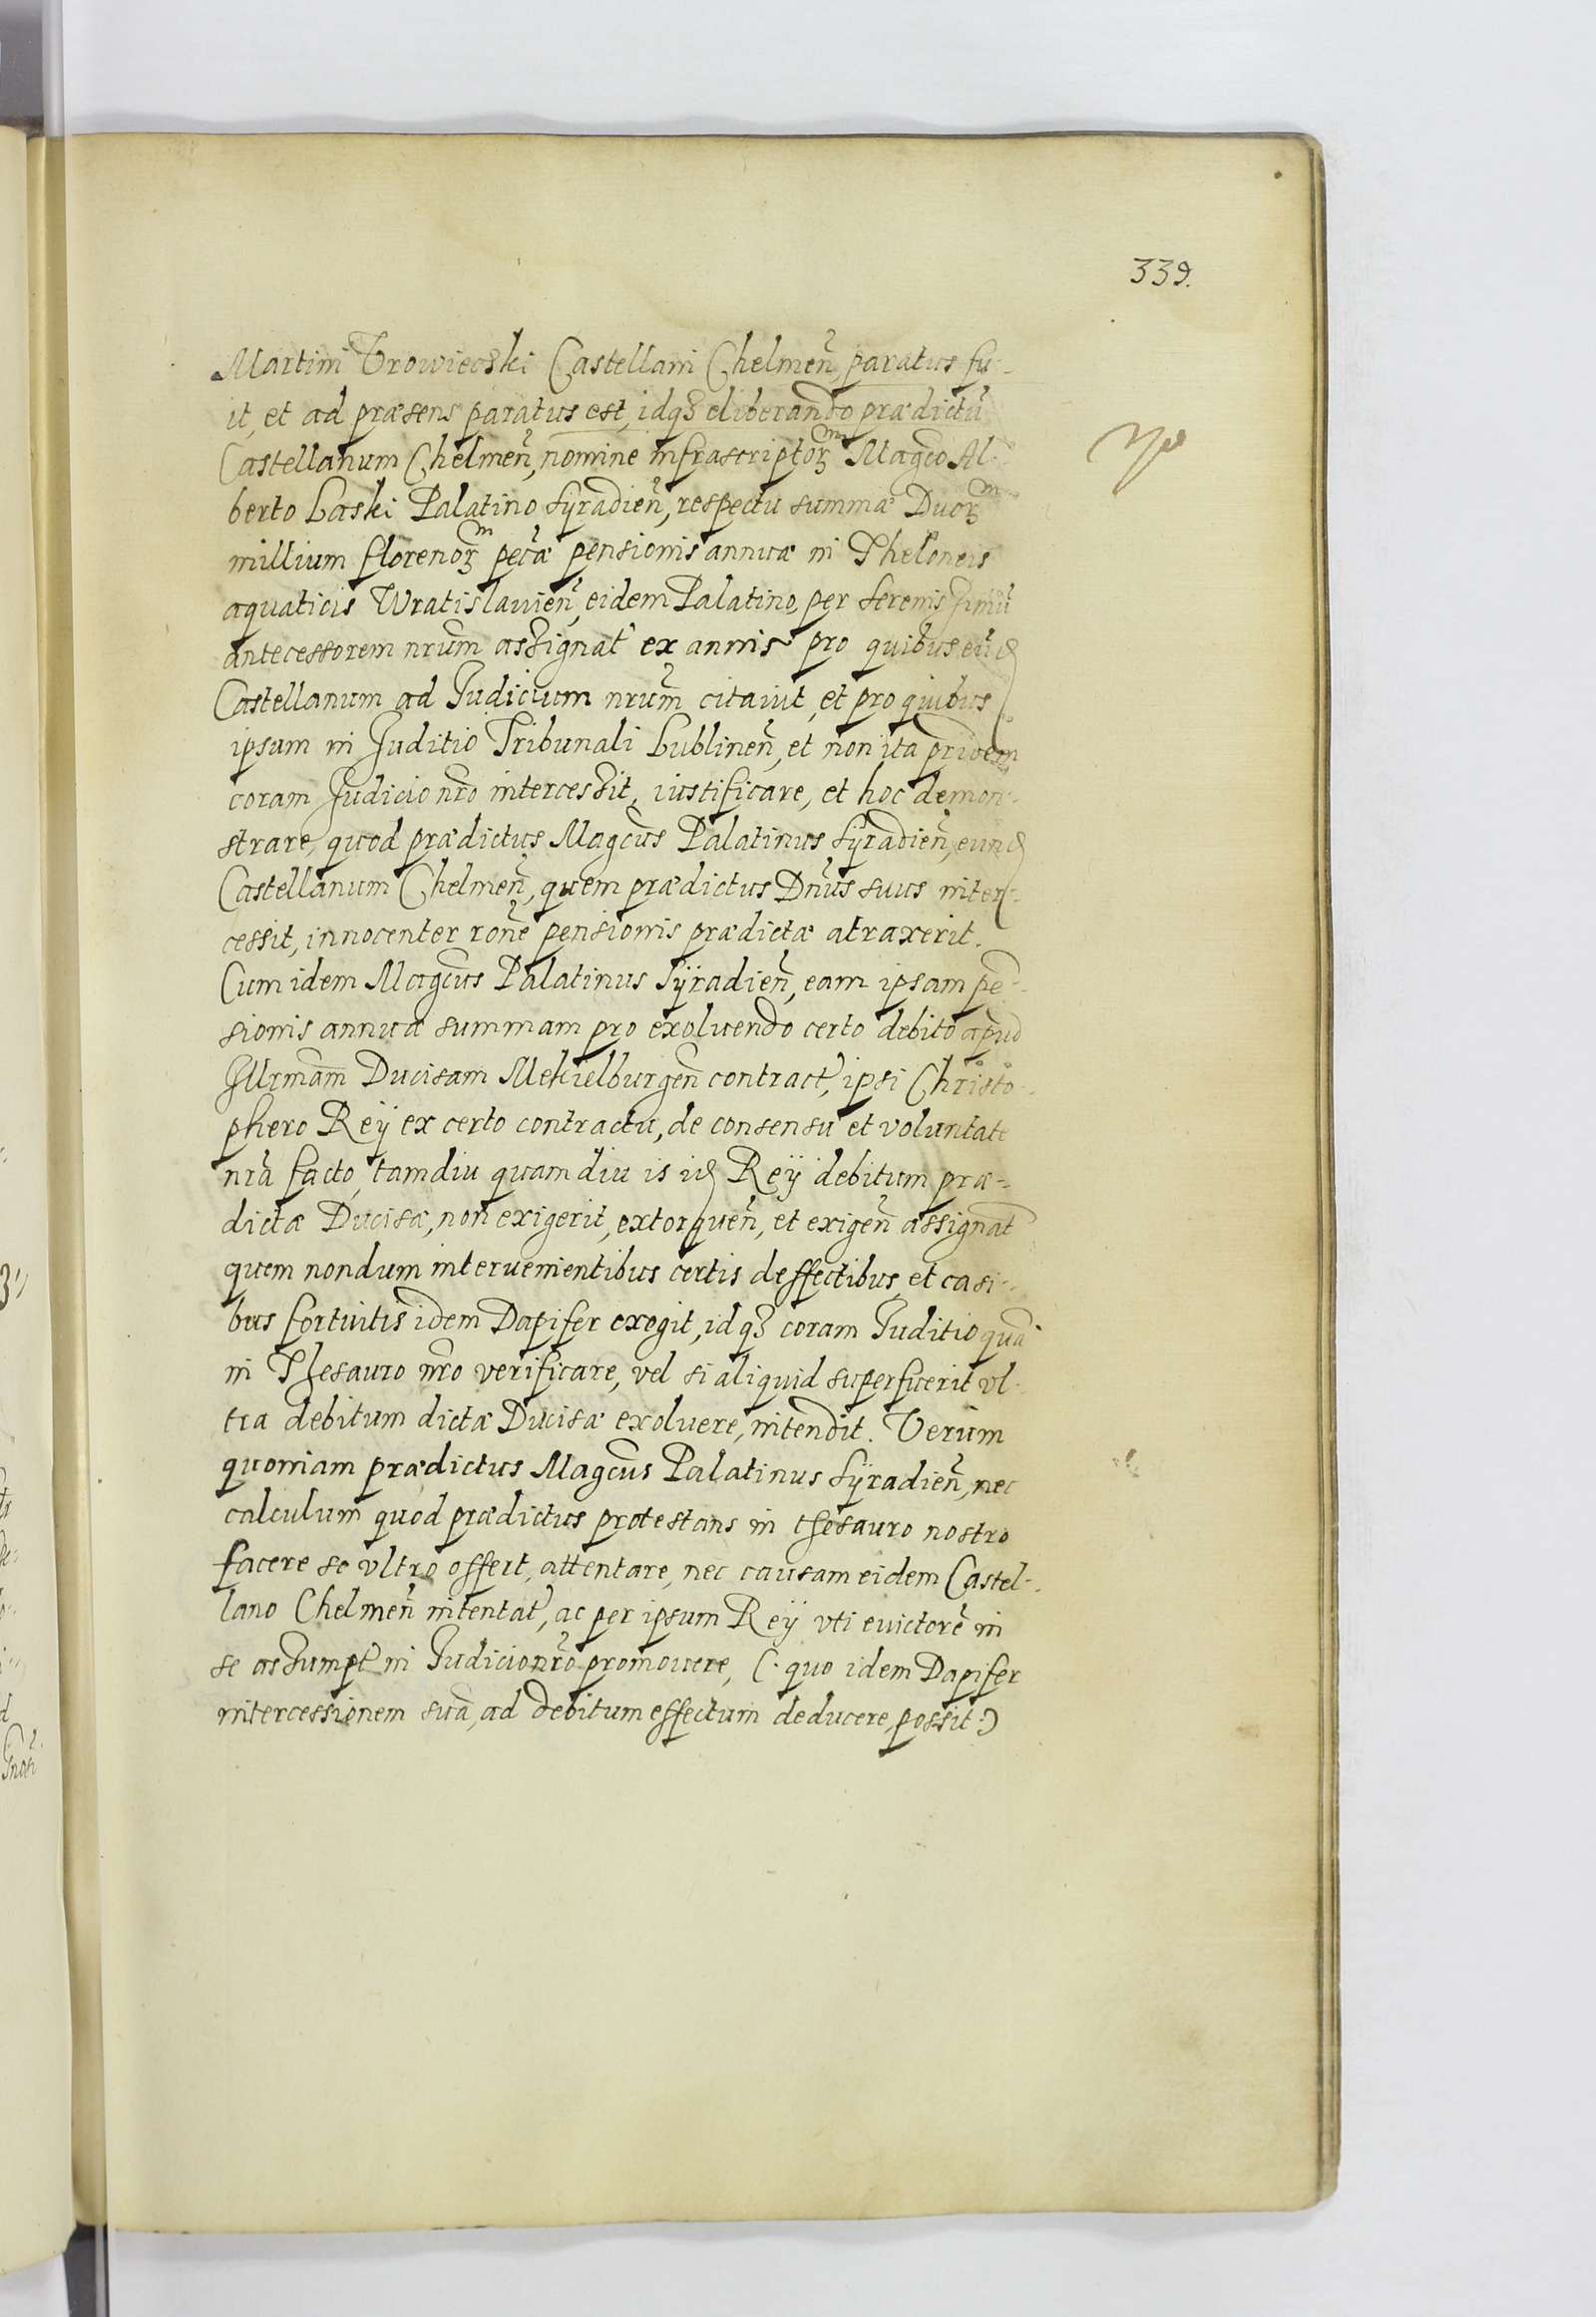 339.
Martini Vrowiecski Castellani Chelmeñ, paratus fu-
it, et ad præsens paratus est, idqȝ eliberando prædictū
Castellanum Chelmeñ, nomine infrascriptoꝝ Magco Al-
berto Laski Palatino Syradieñ, respectu summæ Duoꝝ
millium florenoꝝ pecæ pensionis annuæ in Theloneis
aquaticis Wratislauieñ, eidem Palatino, per Serenissimū
antecessorem nrum assignat ex annis pro quibus
Castellanum ad Judicium nrum citauit, et pro quibus
ipsum in Juditio Tribunali Lublineñ, et non ita pridem
coram Judicio nro intercessit, iustificare, et hoc demon-
strare, quod prædictus Magcus Palatinus Syradieñ, eund
Castellanum Chelmeñ, quem prædictus Dnus suus inter-
cessit, innocenter rone pensionis prædictæ atraxerit.
Cum idem Magcus Palatinus Sÿradieñ, eam ipsam pe-
sionis annua summam pro exoluendo certo debito apud
Illrmam Ducisam Mekielburgeñ contract, ipsi Christo-
phero Reÿ ex certo contractu, de consensu et voluntate
nra facto, tamdiu quamdiu is id Reÿ debitum præ-
dictæ Ducisæ, non exigerit, extorqueñ, et exigeñ assignat
quem nondum interuenientibus certis deffectibus, et casi-
bus fortuitis idem Dapifer exegit, idqȝ coram Juditio quā
in Thesauro nro verificare, vel si aliquid superfuerit vl-
tra debitum dictæ Ducisæ exoluere, intendit. Verum
quoniam prædictus Magcus Palatinus Sÿradieñ, nec
calculum quod prædictus protestans in thesauro nostro
facere se vltro offert, attentare, nec causam eidem Castel-
lano Chelmeñ intentat, ac per ipsum Reÿ vti euictorē in
se assumpt in Judicio nro promouere, (: quo idem Dapifer
intercessionem suā, ad debitum effectum deducere, possit :)